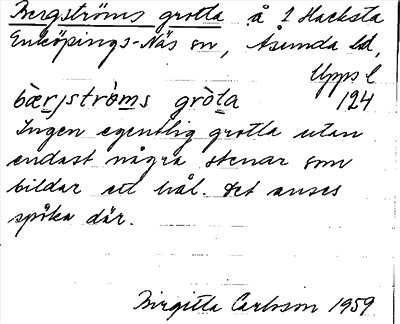 Bergströms grotta å 1 Hacksta
Enköpings-Näs sn, Åsunda hd,
Upps l
bærjstròms gròta 124
Ingen egentlig grotta utan
endast några stenar som
bildar ett hål. Det anses
spöka där.
Birgitta Carlsson 1959